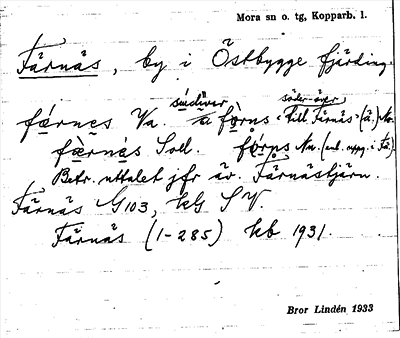 Mora sn o. tg, Kopparb. l.
Färnäs, by i Östbygge fjärding
færnes Va. a fǫrns "till Färnäs" (ä.) No.
söder-äfr
færnäs Soll. fǫrns Nu. (enl. uppg. i Fä)
Betr. uttalet jfr äv. Färnästjärn.
Färnäs G103, kh S V.
Färnäs (1-285) kb 1931.
Bror Lindén 1933